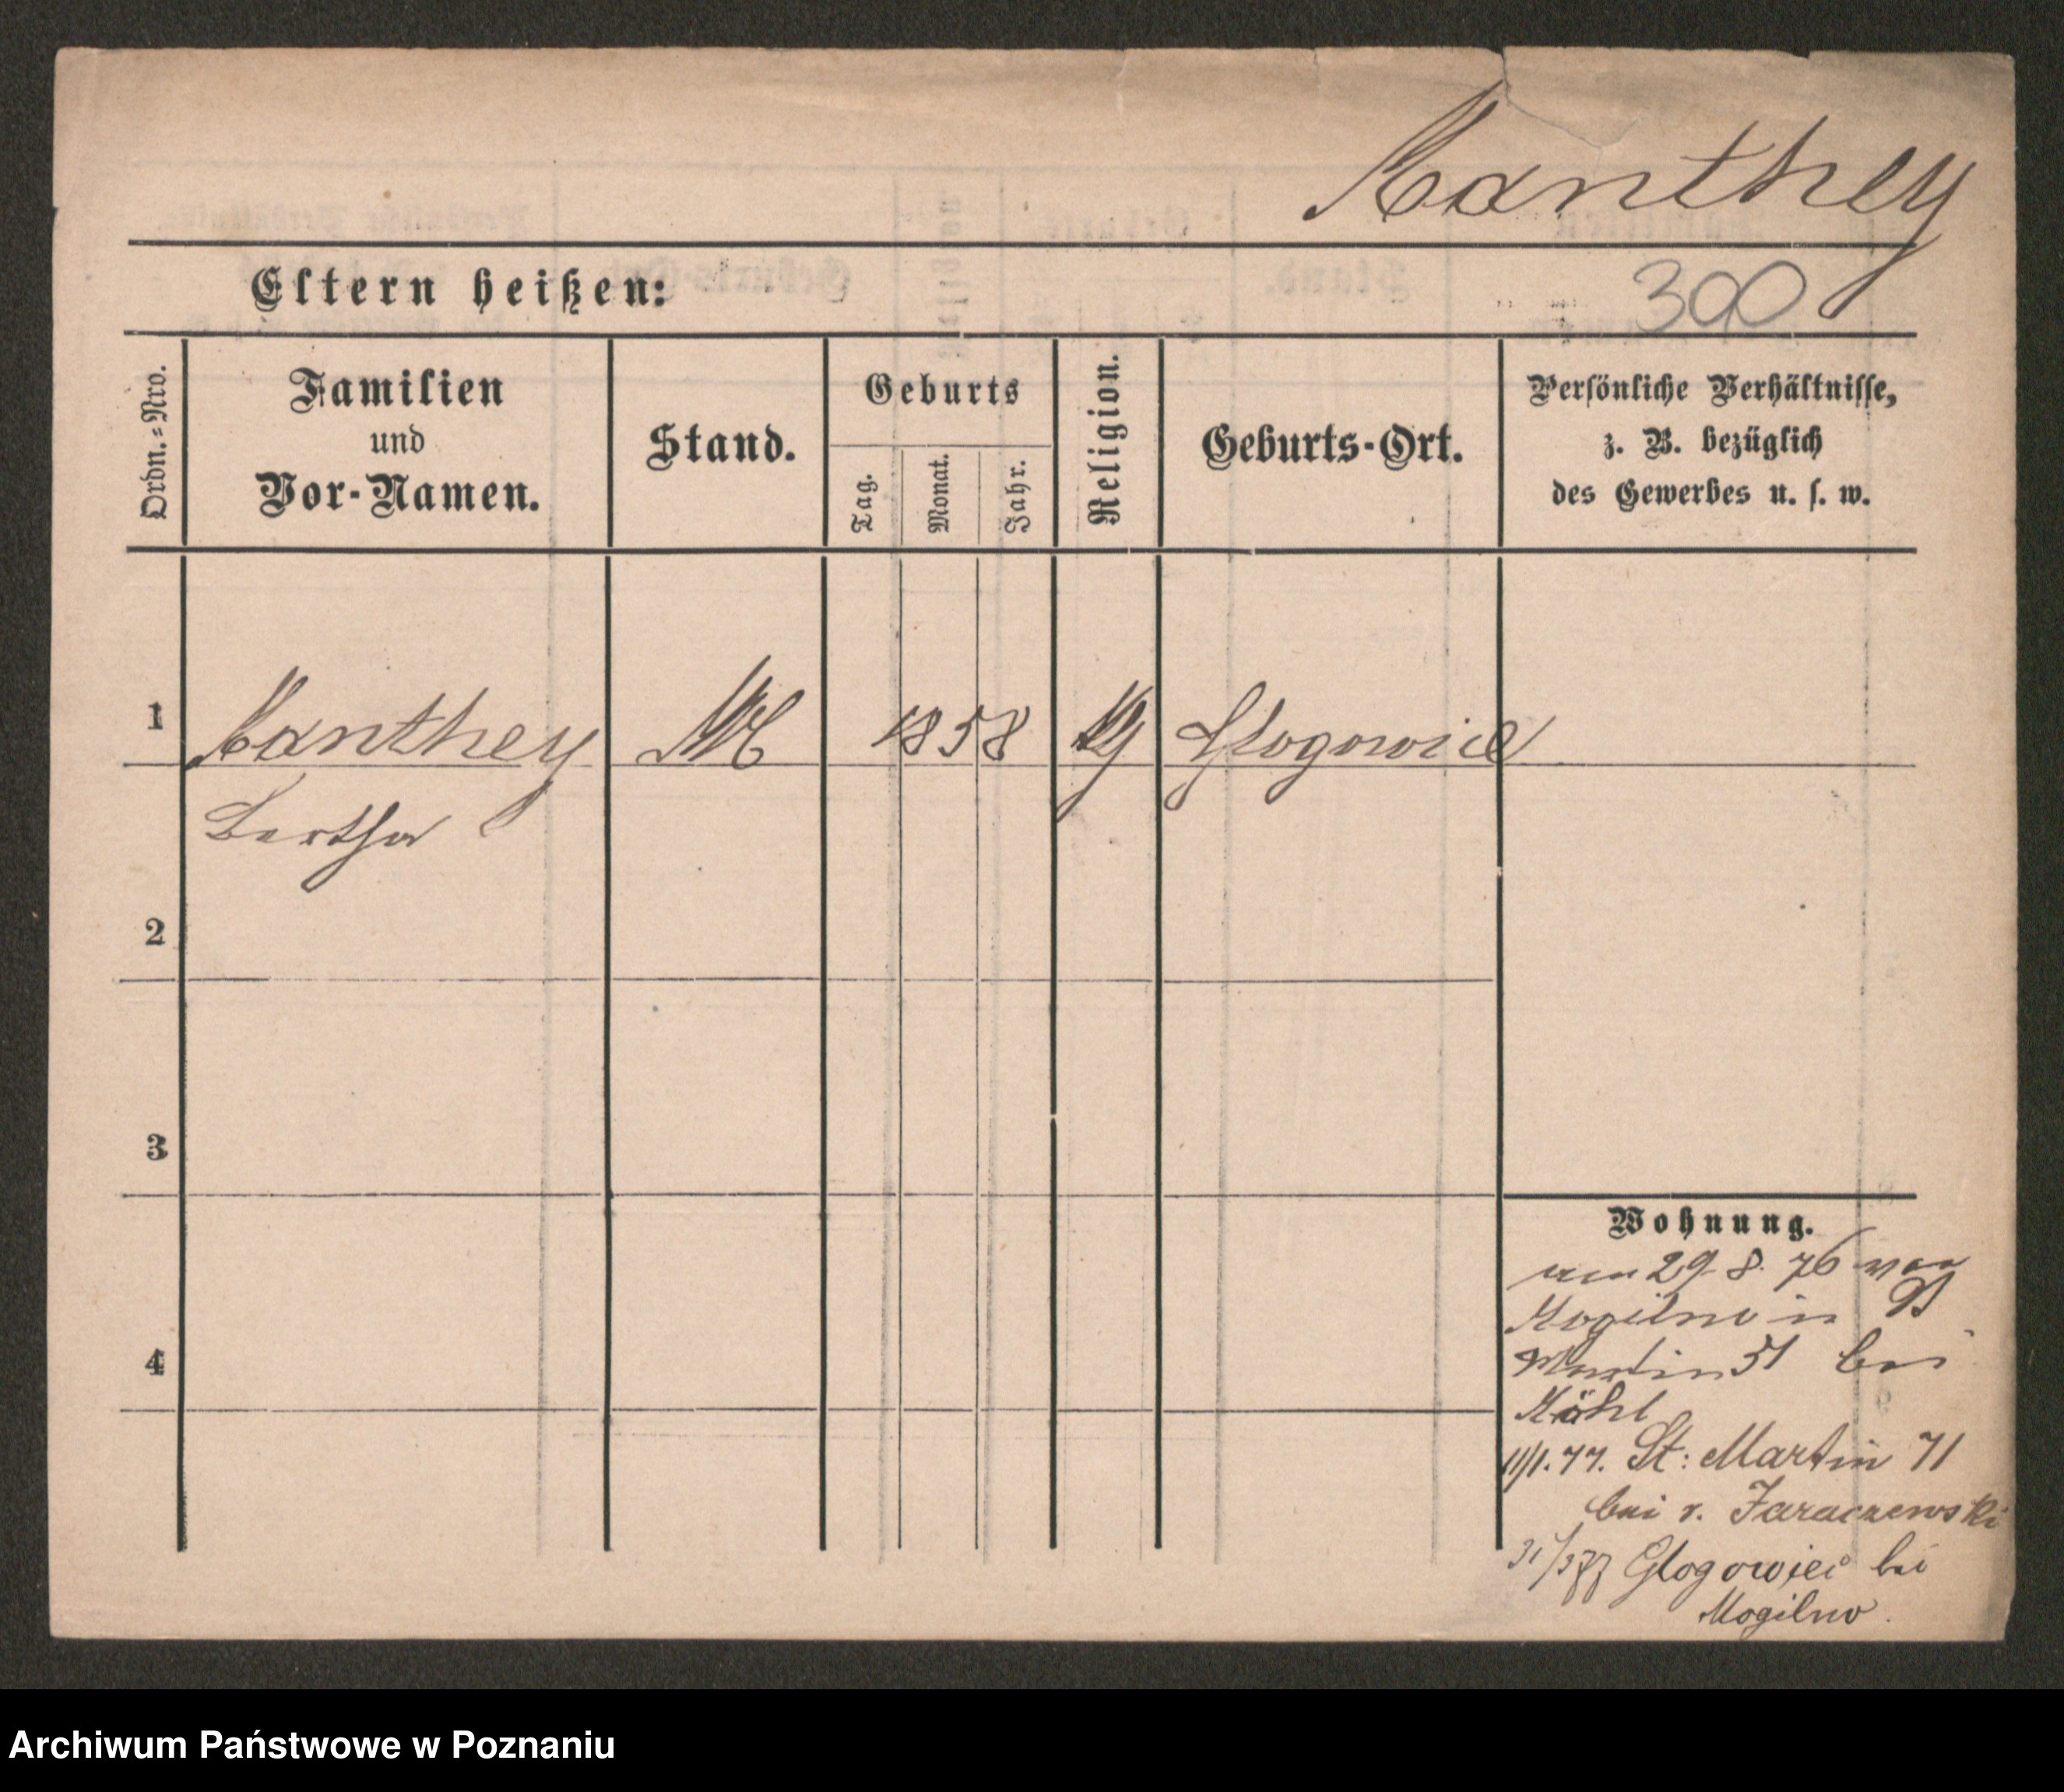 Kanthey
300
Eltern heißen:
Ordn.-Nro.
Familien
und
Vor-Namen.
Stand.
Geburts
Tag.
Monat.
Jahr.
Religion.
Geburts-Ort.
Persönliche Verhältnisse,
z. B. bezüglich
des Gewerbes u. s. w.
1
Kanthey
1858
Glogowice
Bertha
2
3
4
Wohnung.
29. 8. 76 von
Mogilno in
Martin 51 bei
11/1. 77. St: Martin 71
bei v. Jaraczewski
31/3 77 Glogowiec bei
Mogilno.
Archiwum Państwowe w Poznaniu